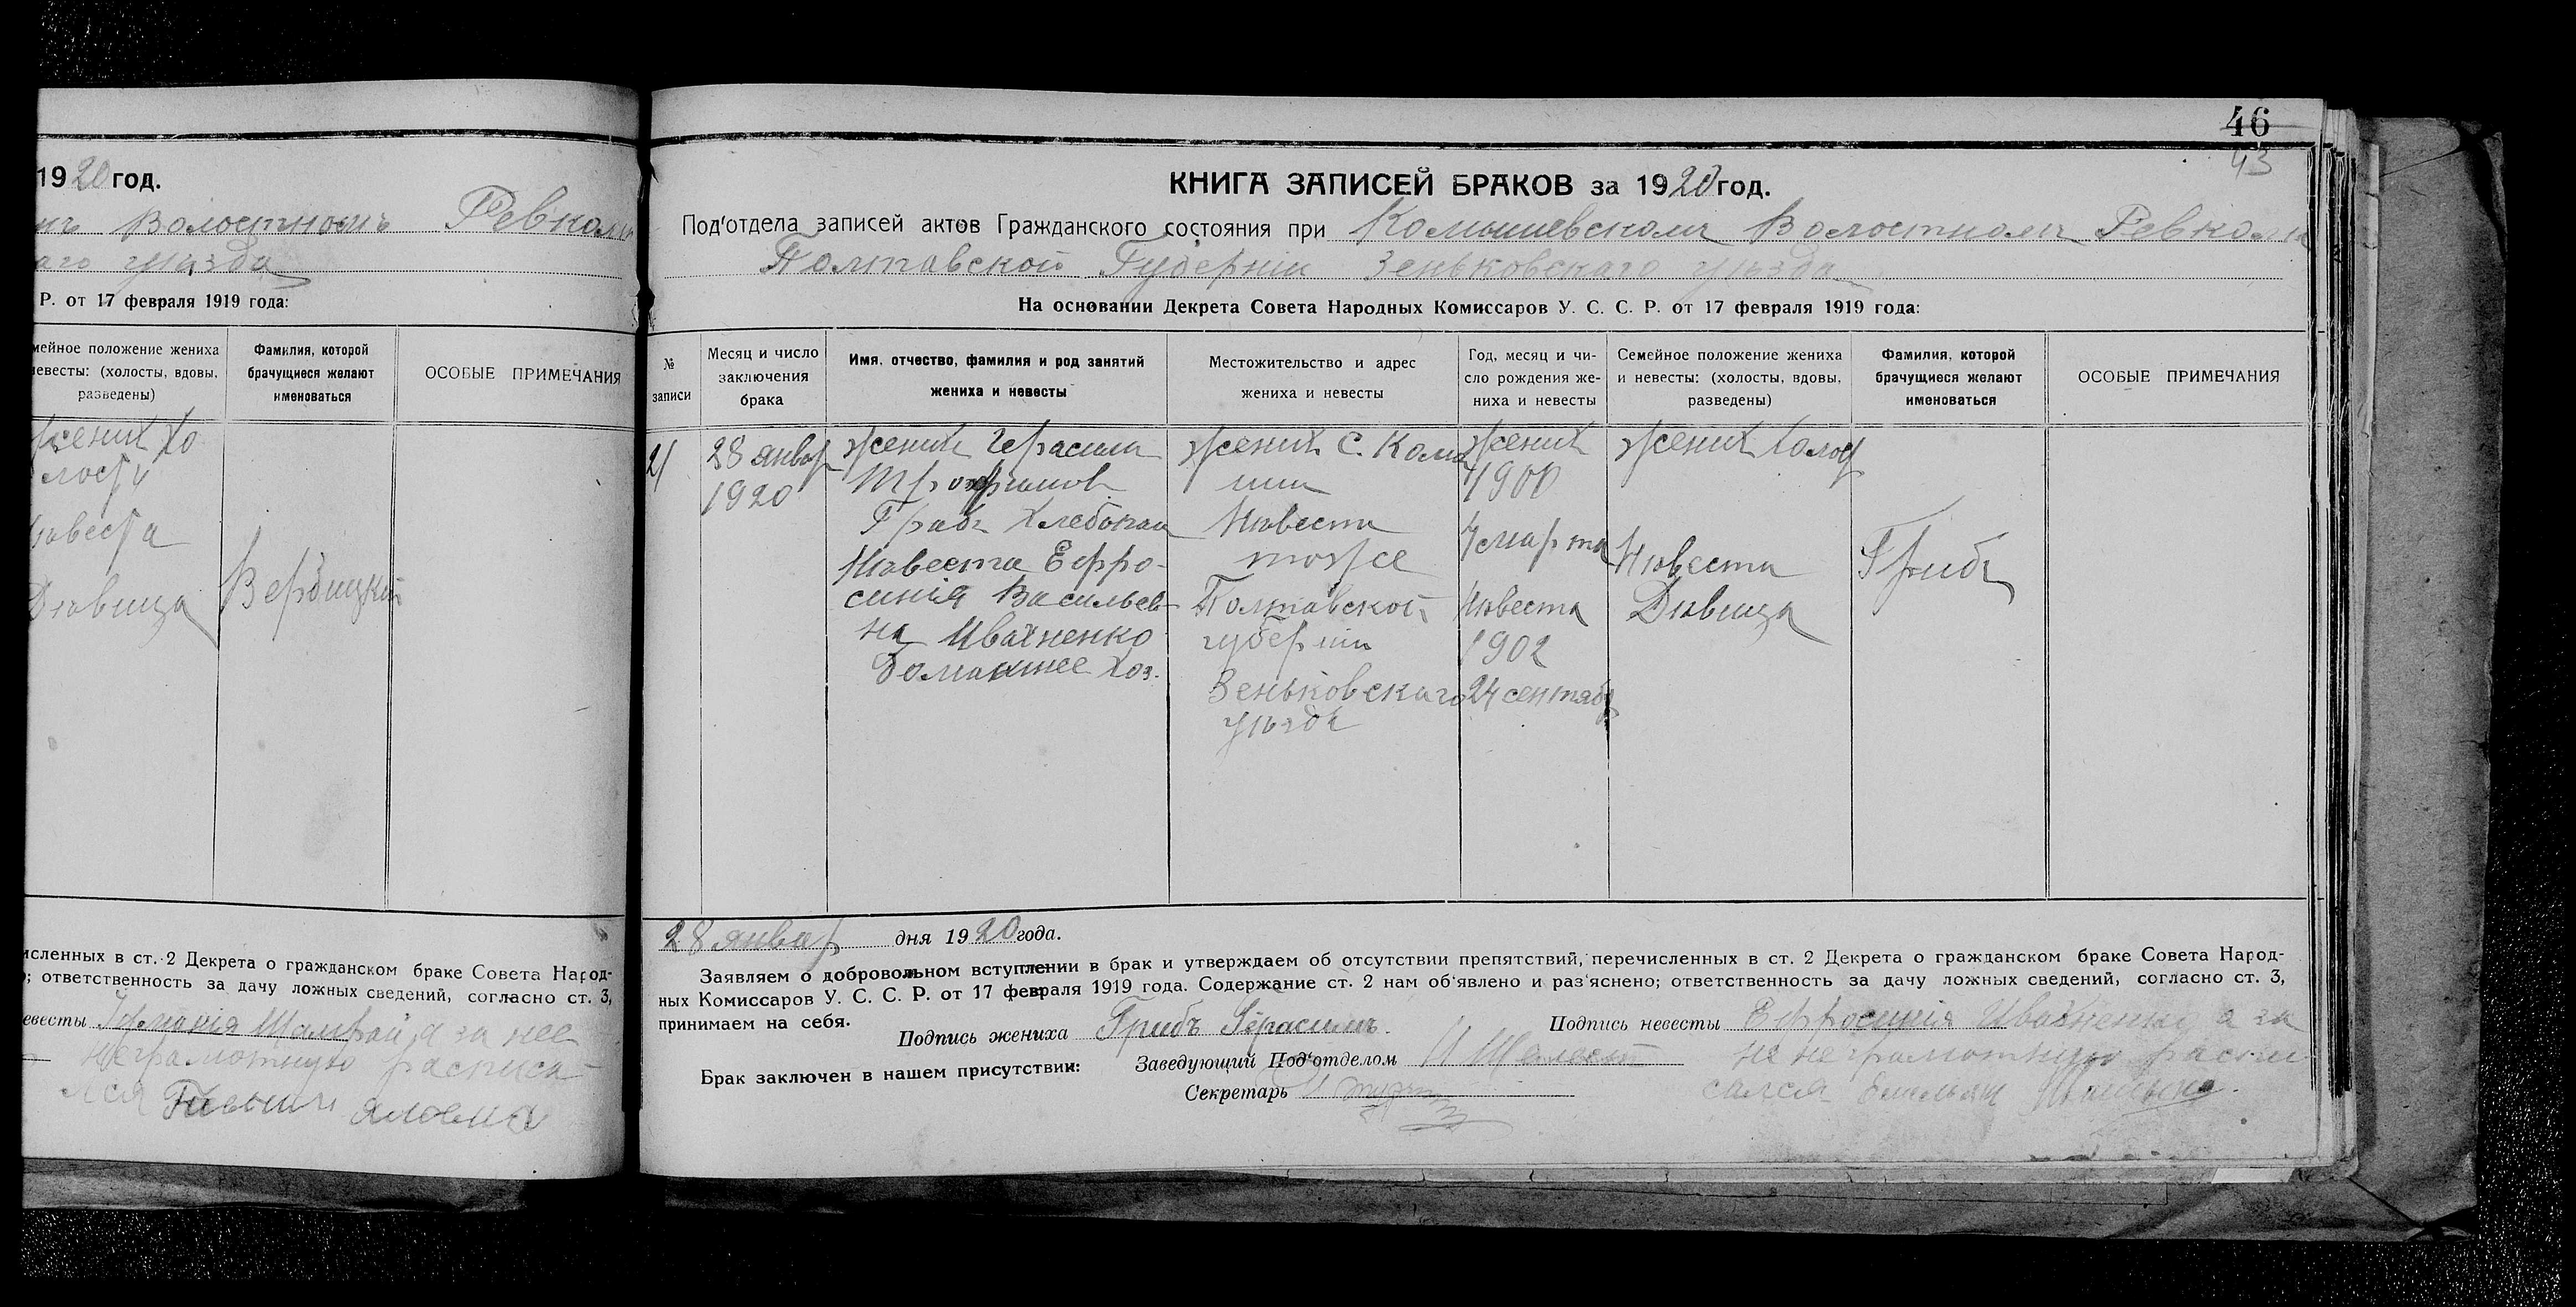 1920 год.
мъ Волостномъ Ревком
аго уѣзда
Р. от 17 февраля 1919 года:
мейное положение жениха
невесты: (холосты, вдовы,
разведены)
Фамилия, которой
брачущиеся желают
именоваться
ОСОБЫЕ ПРИМЕЧАНИЯ
Жених Хо
лостъ
Невеста
Дѣвица
Вербицкій
исленных в ст. 2 Декрета о гражданском браке Совета Народ-
; ответственность за дачу ложных сведений, согласно ст. 3,
евесты а за нее
неграмотную расписа
лся
46
43
КНИГА ЗАПИСЕЙ БРАКОВ за 1920 год.
Под'отдела записей актов Гражданского состояния при Комышевскомъ Волостномъ Ревком
Полтавской Губерніи Зеньковскаго уѣзда
На основании Декрета Совета Народных Комиссаров У. С. С. Р. от 17 февраля 1919 года:
№
записи
Месяц и число
заключения
брака
Имя, отчество, фамилия и род занятий
жениха и невесты
Местожительство и адрес
жениха и невесты
Год, месяц и чи-
сло рождения же-
ниха и невесты
Семейное положение жениха
и невесты: (холосты, вдовы,
разведены)
Фамилия, которой
брачущиеся желают
именоваться
ОСОБЫЕ ПРИМЕЧАНИЯ
21
28 январ
1920
Жених Герасим
Трофимов
Грибъ Хлебопаш
Нѣвеста Ефро-
синія Васильев
на Ивахненко
Домашнее хоз.
Жених С. Комы
ши
Нѣвеста
тоже
Полтавской
губерніи
Зеньковскаго
уѣзда
Жених
1900
4 марта
Нѣвеста
1902
24 сентябр
Жених Холост
Нѣвеста
Дѣвица
Грибъ
28 январ дня 1920 года.
Заявляем о добровольном вступлении в брак и утверждаем об отсутствии препятствий, перечисленных в ст. 2 Декрета о гражданском браке Совета Народ-
ных Комиссаров У. С. С. Р. от 17 февраля 1919 года. Содержание ст. 2 нам об'явлено и раз'яснено; ответственность за дачу ложных сведений, согласно ст. 3,
принимаем на себя.
Подпись жениха Грибъ Герасимъ.
Подпись невесты Ефросинія Ивахненко а за
не неграмотную распи
сался Емельян
Брак заключен в нашем присутствии:
Заведующий Под'отделом
Секретарь